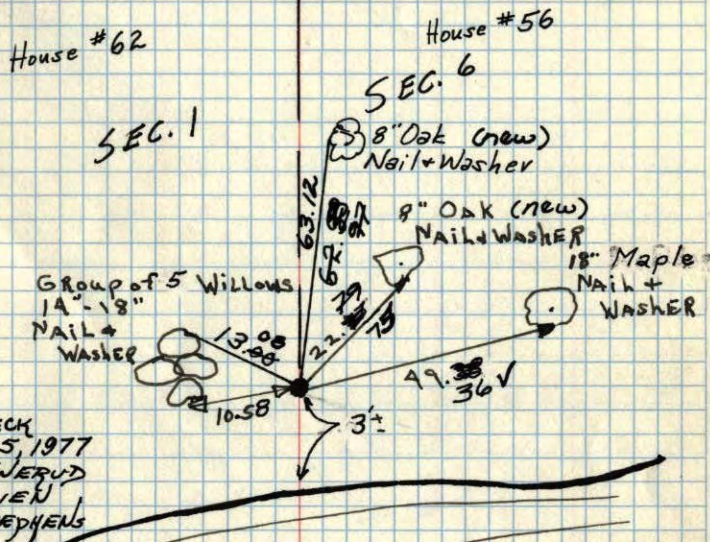 House #62
House #56
SEC. 1
SEC. 6
8" Oak (new)
Nail & Washer
8" OAK (new)
NAIL & WASHER
18" Maple
NAIL &
WASHER
GROUP of 5 WILLOWS
14"-18"
NAIL &
WASHER
63.12
62.
22.
13.08
49.36 ✓
10.58
3'±
5, 1977